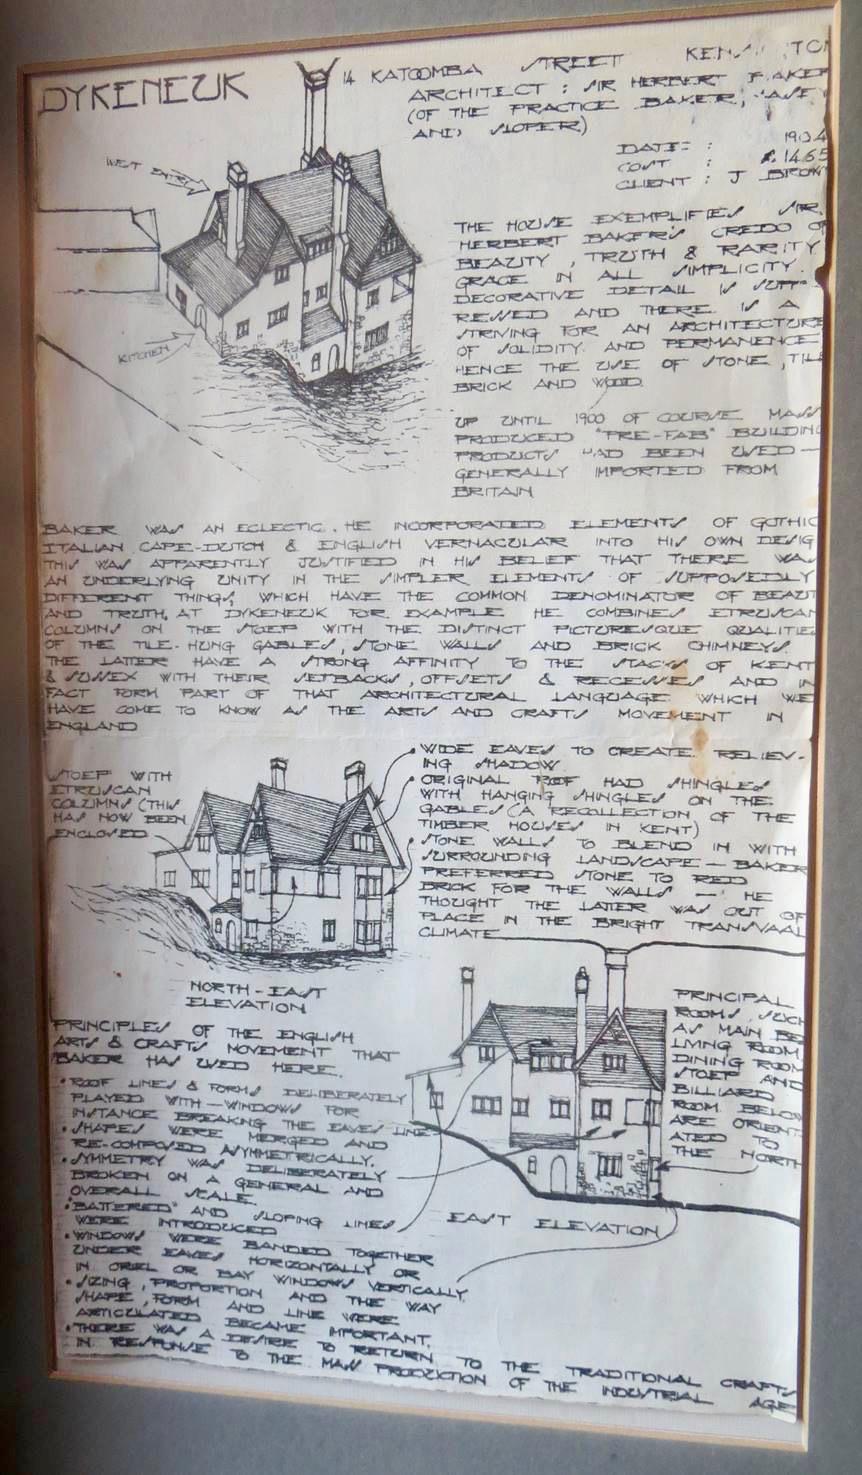 DYKENEUK
14 KATOOMBA STREET
ARCHITECT : SIR HERBERT BAKER
(OF THE PRACTICE BAKER,
AND SLOPER)
DATE : 1904
COST : £1465
CLIENT : J BROWN
WEST ENTRY
KITCHEN
THE HOUSE EXEMPLIFIES SIR
HERBERT BAKER'S CREDO OF
BEAUTY, TRUTH & RARITY
GRACE IN ALL SIMPLICITY.
DECORATIVE DETAIL IS SUPP-
RESSED AND THERE IS A
STRIVING FOR AN ARCHITECTURE
OF SOLIDITY AND PERMANENCE
HENCE THE USE OF STONE, TILE
BRICK AND WOOD.
UP UNTIL 1900 OF COURSE MASS
PRODUCED "PRE-FAB" BUILDING
PRODUCTS HAD BEEN USED —
GENERALLY IMPORTED FROM
BRITAIN
BAKER WAS AN ECLECTIC. HE INCORPORATED ELEMENTS OF GOTHIC
ITALIAN CAPE-DUTCH & ENGLISH VERNACULAR INTO HIS OWN DESIG
THIS WAS APPARENTLY JUSTIFIED IN HIS BELIEF THAT THERE WAS
AN UNDERLYING UNITY IN THE SIMPLER ELEMENTS OF SUPPOSEDLY
DIFFERENT THINGS, WHICH HAVE THE COMMON DENOMINATOR OF BEAUT
AND TRUTH. AT DYKENEUK FOR EXAMPLE HE COMBINES ETRUSCAN
COLUMNS ON THE STOEP WITH THE DISTINCT PICTURESQUE QUALITIE
OF THE TILE-HUNG GABLES, STONE WALLS AND BRICK CHIMNEYS.
THE LATTER HAVE A STRONG AFFINITY TO THE STACKS OF KENT
& SUSSEX WITH THEIR SETBACKS, OFFSETS & RECESSES AND IN
FACT FORM PART OF THAT ARCHITECTURAL LANGUAGE WHICH WE
HAVE COME TO KNOW AS THE ARTS AND CRAFTS MOVEMENT IN
ENGLAND
STOEP WITH
ETRUSCAN
COLUMNS (THIS
HAS NOW BEEN
ENCLOSED
• WIDE EAVES TO CREATE RELIEV-
ING SHADOW.
• ORIGINAL ROOF HAD SHINGLES
WITH HANGING SHINGLES ON THE
GABLES (A RECOLLECTION OF THE
TIMBER HOUSES IN KENT)
• STONE WALLS TO BLEND IN WITH
SURROUNDING LANDSCAPE — BAKER
PREFERRED STONE TO RED
BRICK FOR THE WALLS — HE
THOUGHT THE LATTER WAS OUT OF
PLACE IN THE BRIGHT TRANSVAAL
CLIMATE
NORTH-EAST
ELEVATION
PRINCIPAL
ROOMS, SUCH
AS MAIN BE
LIVING ROOM,
DINING ROOM
STOEP AND
BILLIARD
ROOM BELOW
ARE ORIENT
ATED TO
THE NORTH
EAST ELEVATION
PRINCIPLES OF THE ENGLISH
ARTS & CRAFTS MOVEMENT THAT
BAKER HAS USED HERE.
• ROOF LINES & FORMS DELIBERATELY
PLAYED WITH — WINDOWS FOR
INSTANCE BREAKING THE EAVES LINE
• SHAPES WERE MERGED AND
RE-COMPOSED ASYMMETRICALLY.
• SYMMETRY WAS DELIBERATELY
BROKEN ON A GENERAL AND
OVERALL SCALE.
• "BATTERED" AND SLOPING LINES
WERE INTRODUCED
• WINDOWS WERE BANDED TOGETHER
UNDER EAVES HORIZONTALLY OR
IN ORIEL OR BAY WINDOWS VERTICALLY.
• SIZING, PROPORTION AND THE WAY
SHAPE, FORM AND LINE WERE
ARTICULATED BECAME IMPORTANT.
• THERE WAS A DESIRE TO RETURN TO THE TRADITIONAL CRAFTS
IN RESPONSE TO THE MASS PRODUCTION OF THE INDUSTRIAL AGE